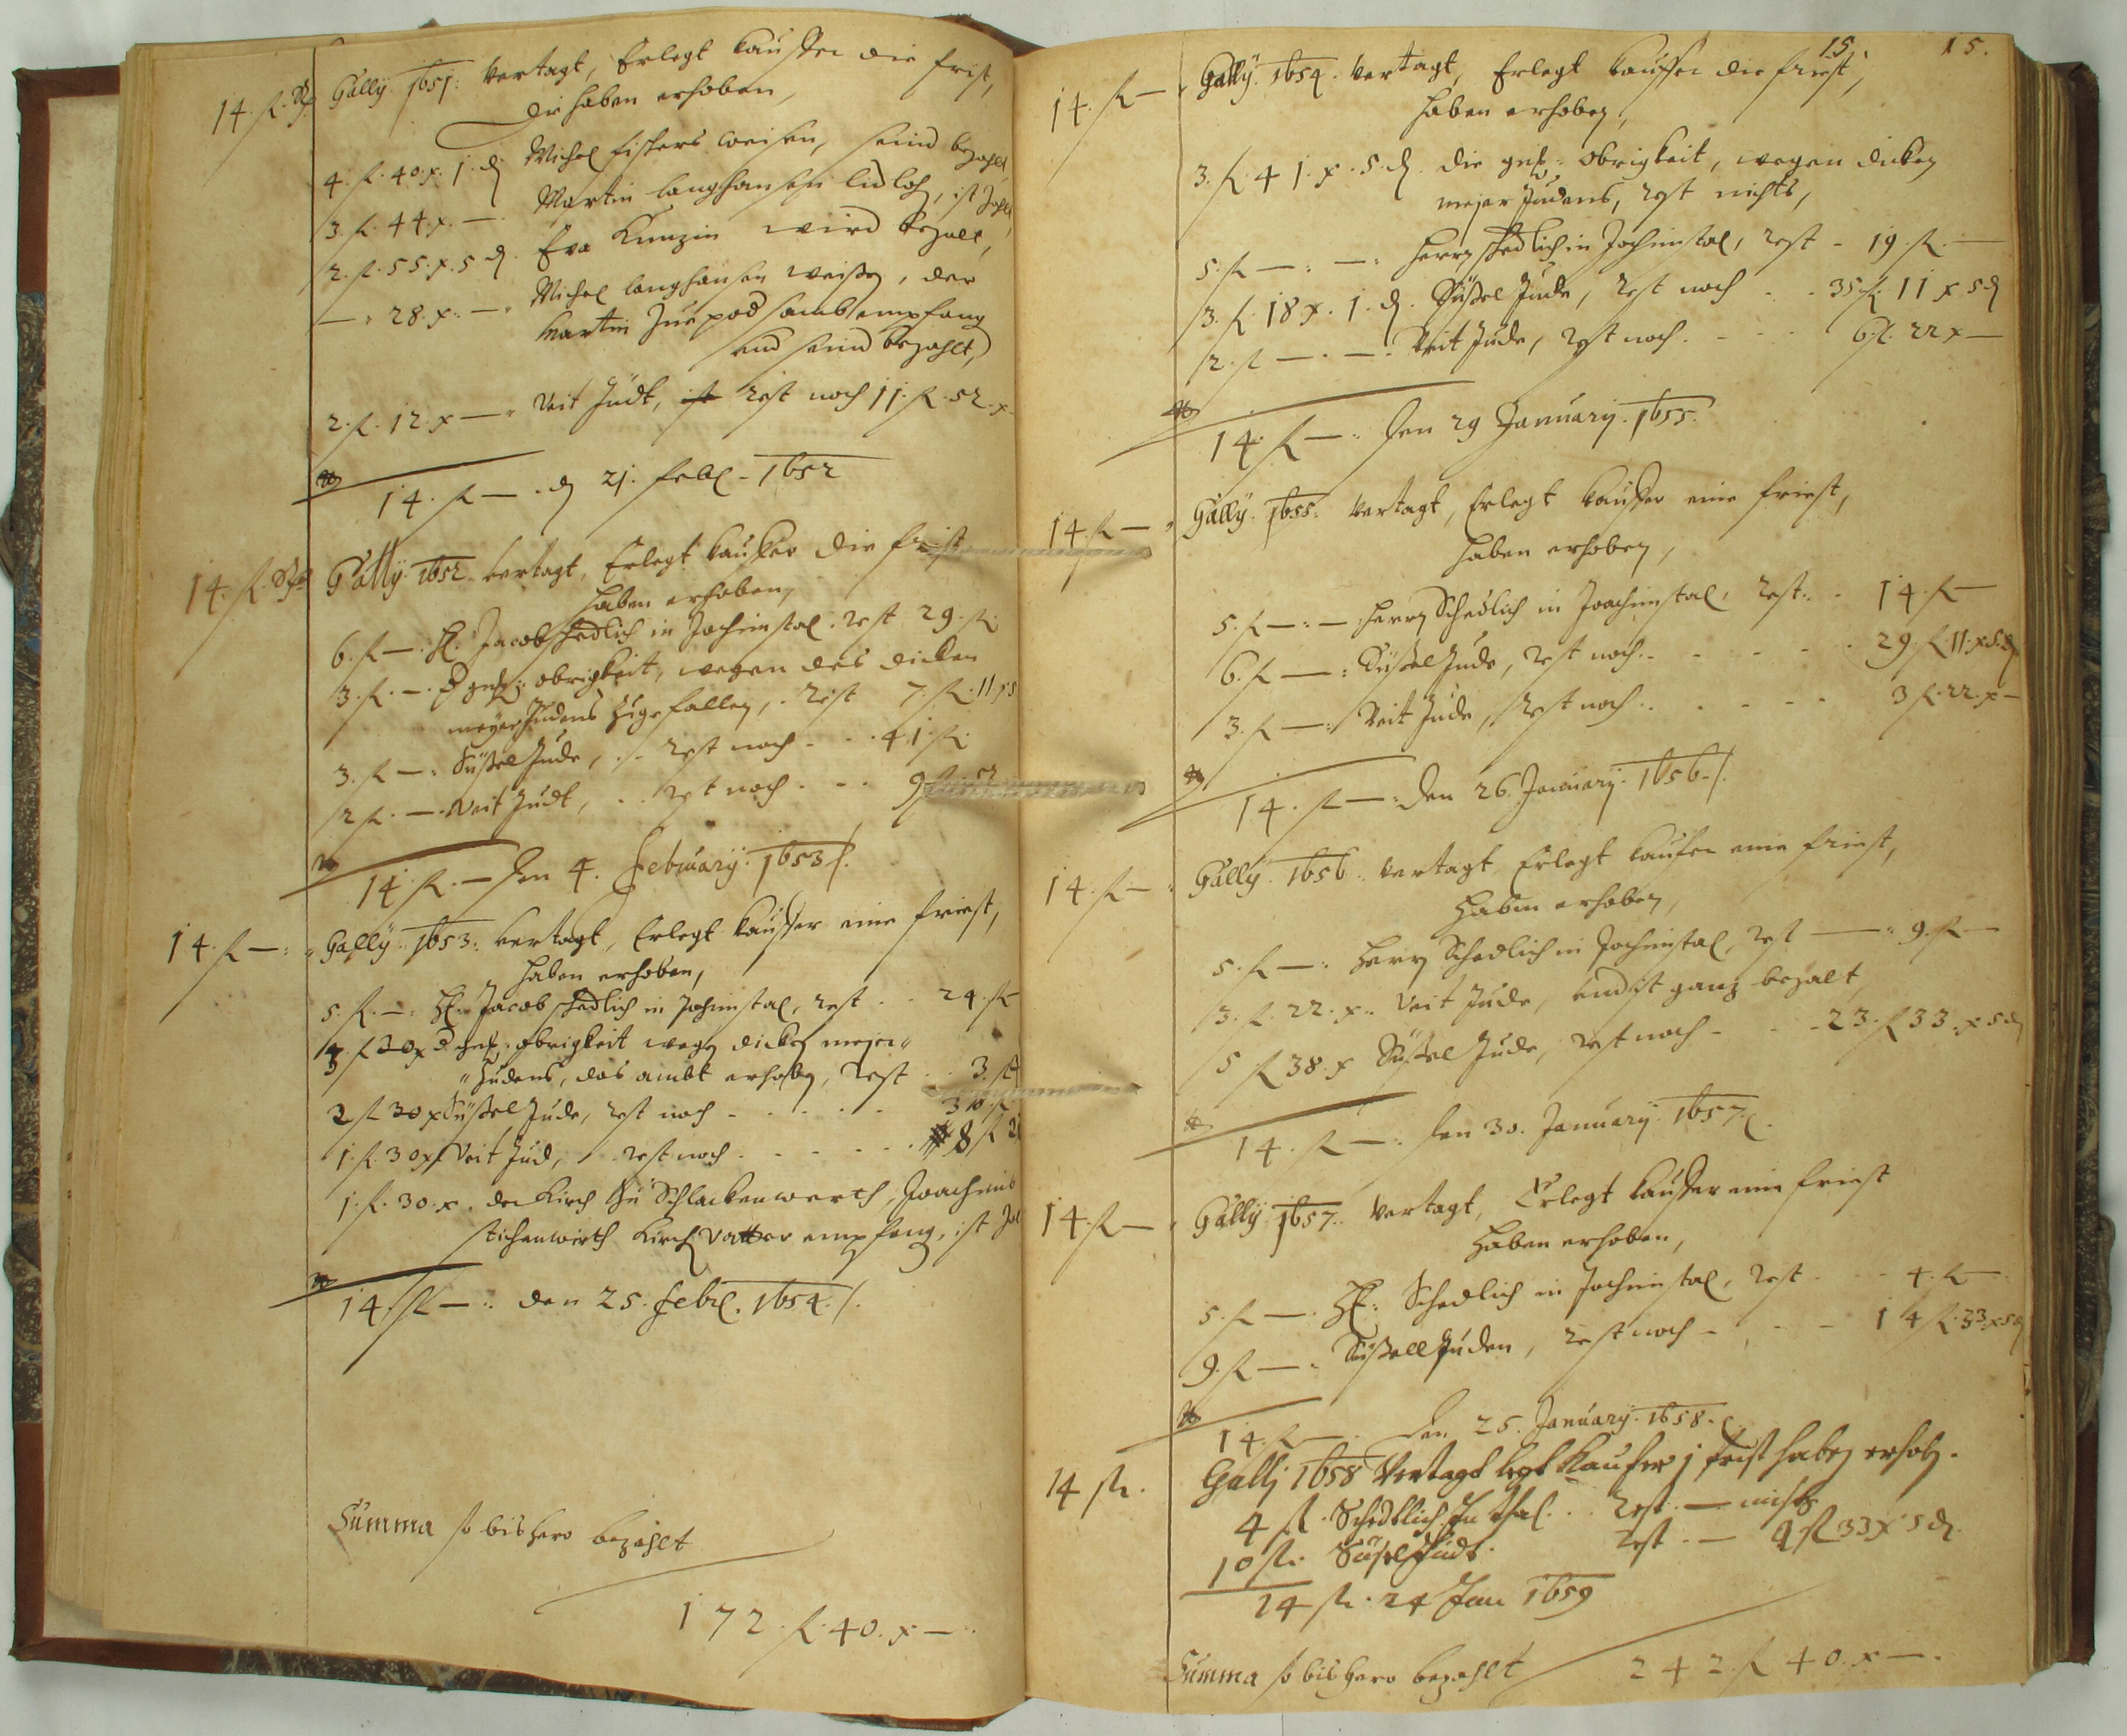 14. fl. Gally. 1651: Vertagt, Erlegt kauffer die frist,
die haben erhoben,
4. fl. 40. x. 1. d Michel fischers weisen, seind bezahlt
3. fl. 44. x. — Martin langhansen lidloh, ist
2. fl. 55. x. 5 d. Eva Kunzin wird bezalt,
— 28. x. — Michel langhansen weisen, der
Martin sambt empfang
und seind bezahlt,
2. fl. 12. x — Veit Judt, ist rest noch 11. fl. 52. x
14. fl — . d 21. feb. 1652
14. fl. Gally 1652 vertagt, Erlegt kauffer die frist
haben erhoben,
6. fl — . H. Jacob Schedlich in Jochimstal. rest 29. fl.
3. fl. — . d obrigkeit, wegen des dicken
meyer Judens zugefallen, . rest 7. fl. 11 x 5
3. fl — : Süssel Jude, . rest noch . . 41. fl.
2 fl. — . Veit Judt, . . rest noch . . . 9 fl. 52
14 fl. — den 4. february. 1653 /.
14. fl — : Gally. 1653: vertagt, Erlegt kauffer eine friest,
haben erhoben,
5. fl. — : H. Jacob Schedlich in Jochimstal, rest . . 24. fl
fl 30 x d obrigkeit wegen dicken meyer
Judens, das ambt erhoben, rest . . 3. fl
2 fl 30 x Süssel Jude, rest noch . . . . . fl.
1. fl. 30 x Veit Jud, . . rest noch . . . . . 8 fl
1. fl. 30. x. der Kirch zu Schlackenwerth, Joachimb
Kirchvatter empfang, ist
14. fl — : den 25. feb. 1654. /.
Summa so bis hero bezahlt
172. fl. 40. x — .
15. 15.
14. fl — Gally. 1654. Vertagt, Erlegt kauffer die friest,
haben erhoben,
3. fl. 41. x. 5. d. die obrigkeit, wegen dicken
mejer Judens, rest nichts,
5. fl — : — : herrn Schedlich in Jochimstal, rest - 19. fl. —
3. fl. 18 x. 1. d. Süssel Jude, rest noch . . 35 fl. 11 x 5 d
2. fl — . — . Veit Jude, rest noch . - - . 6. fl. 22 x —
14. fl — : den 29 January. 1655.
14. fl — Gally. 1655: Vertagt, Erlegt kauffer eine friest,
haben erhoben,
5. fl — : — : herrn Schedlich in Joachimstal, rest . . 14. fl —
6. fl — : Süssel Jude, rest noch . - - - - . 29. fl. 11. x 5. d
3. fl — : Veit Jude, rest noch . . - - - - 3 fl. 22. x —
14. fl — : den 26. January. 1656. /.
14. fl — : Gally. 1656. Vertagt Erlegt kaufer eine friest,
haben erhoben,
5. fl — : herrn Schedlich in Jochimstal, rest — : 9. fl —
3. fl. 22. x. Veit Jude, und ist ganz bezalt,
5 fl 38. x Süssel Jude, rest noch - . - - 23. fl 33. x 5 d
14. fl — : den 30. January. 1657
14. fl — Gally. 1657. Vertagt, Erlegt kauffer eine friest
haben erhoben,
5. fl — . H. Schedlich in Jochimstal, rest . . - 4. fl —
9. fl — . Süssell Juden, rest noch - . - - 14 fl. 33. x 5 d
14. fl — . den 25. January. 1658.
14 fl. Gallj 1658 Vertagt legt Kaufer 1 frist haben erhobn.
4 fl. Schedlich Im thal . . rest . — nichts
10 fl. Süsel Judt. rest . — 4 fl 33 x 5 d.
14 fl. 24 Jan 1659
Summa so bis hero bezahlt 242. fl 40. x — .